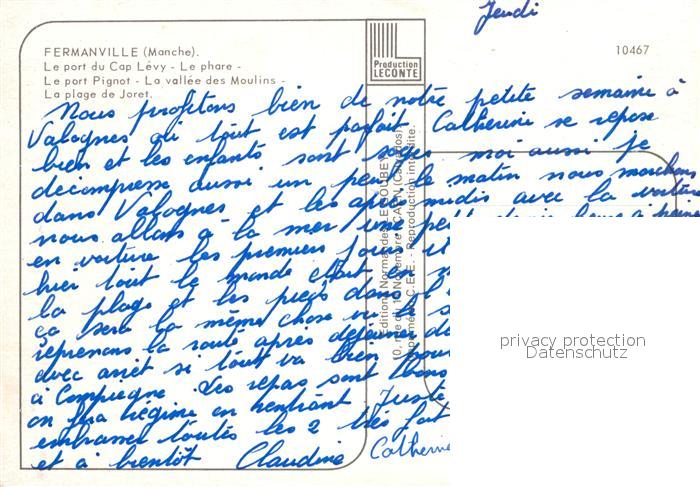 Jeudi
FERMANVILLE (Manche).
10467
Le port du Cap Lévy - Le phare -
Le port Pignot - La vallée des Moulins -
La plage de Joret.
Production
LECONTE
Nous profitons bien de notre petite semaine à
Valognes où tout est parfait Catherine se repose
bien et les enfants sont sages moi aussi je
décompresse aussi un peu le matin nous marchons
dans Valognes et les après midis avec la voiture
nous allons à la mer une pe
en voiture les premiers jours it
hier tout le monde était en
la plage et les pieds dans l'
ça sera la même chose
reprenons la route après déjeuner
avec arrêt si tout va bien pour
à Compiègne. Les repas sont bons
on fera régime en rentrant Juste
embrasse toutes les 2 très fort
et à bientôt Claudine Catherine
Editions Normandes LE GOUBEY
10, rue du 11 Novembre CAEN (Calvados)
Reproduction interdite.
privacy protection
Datenschutz